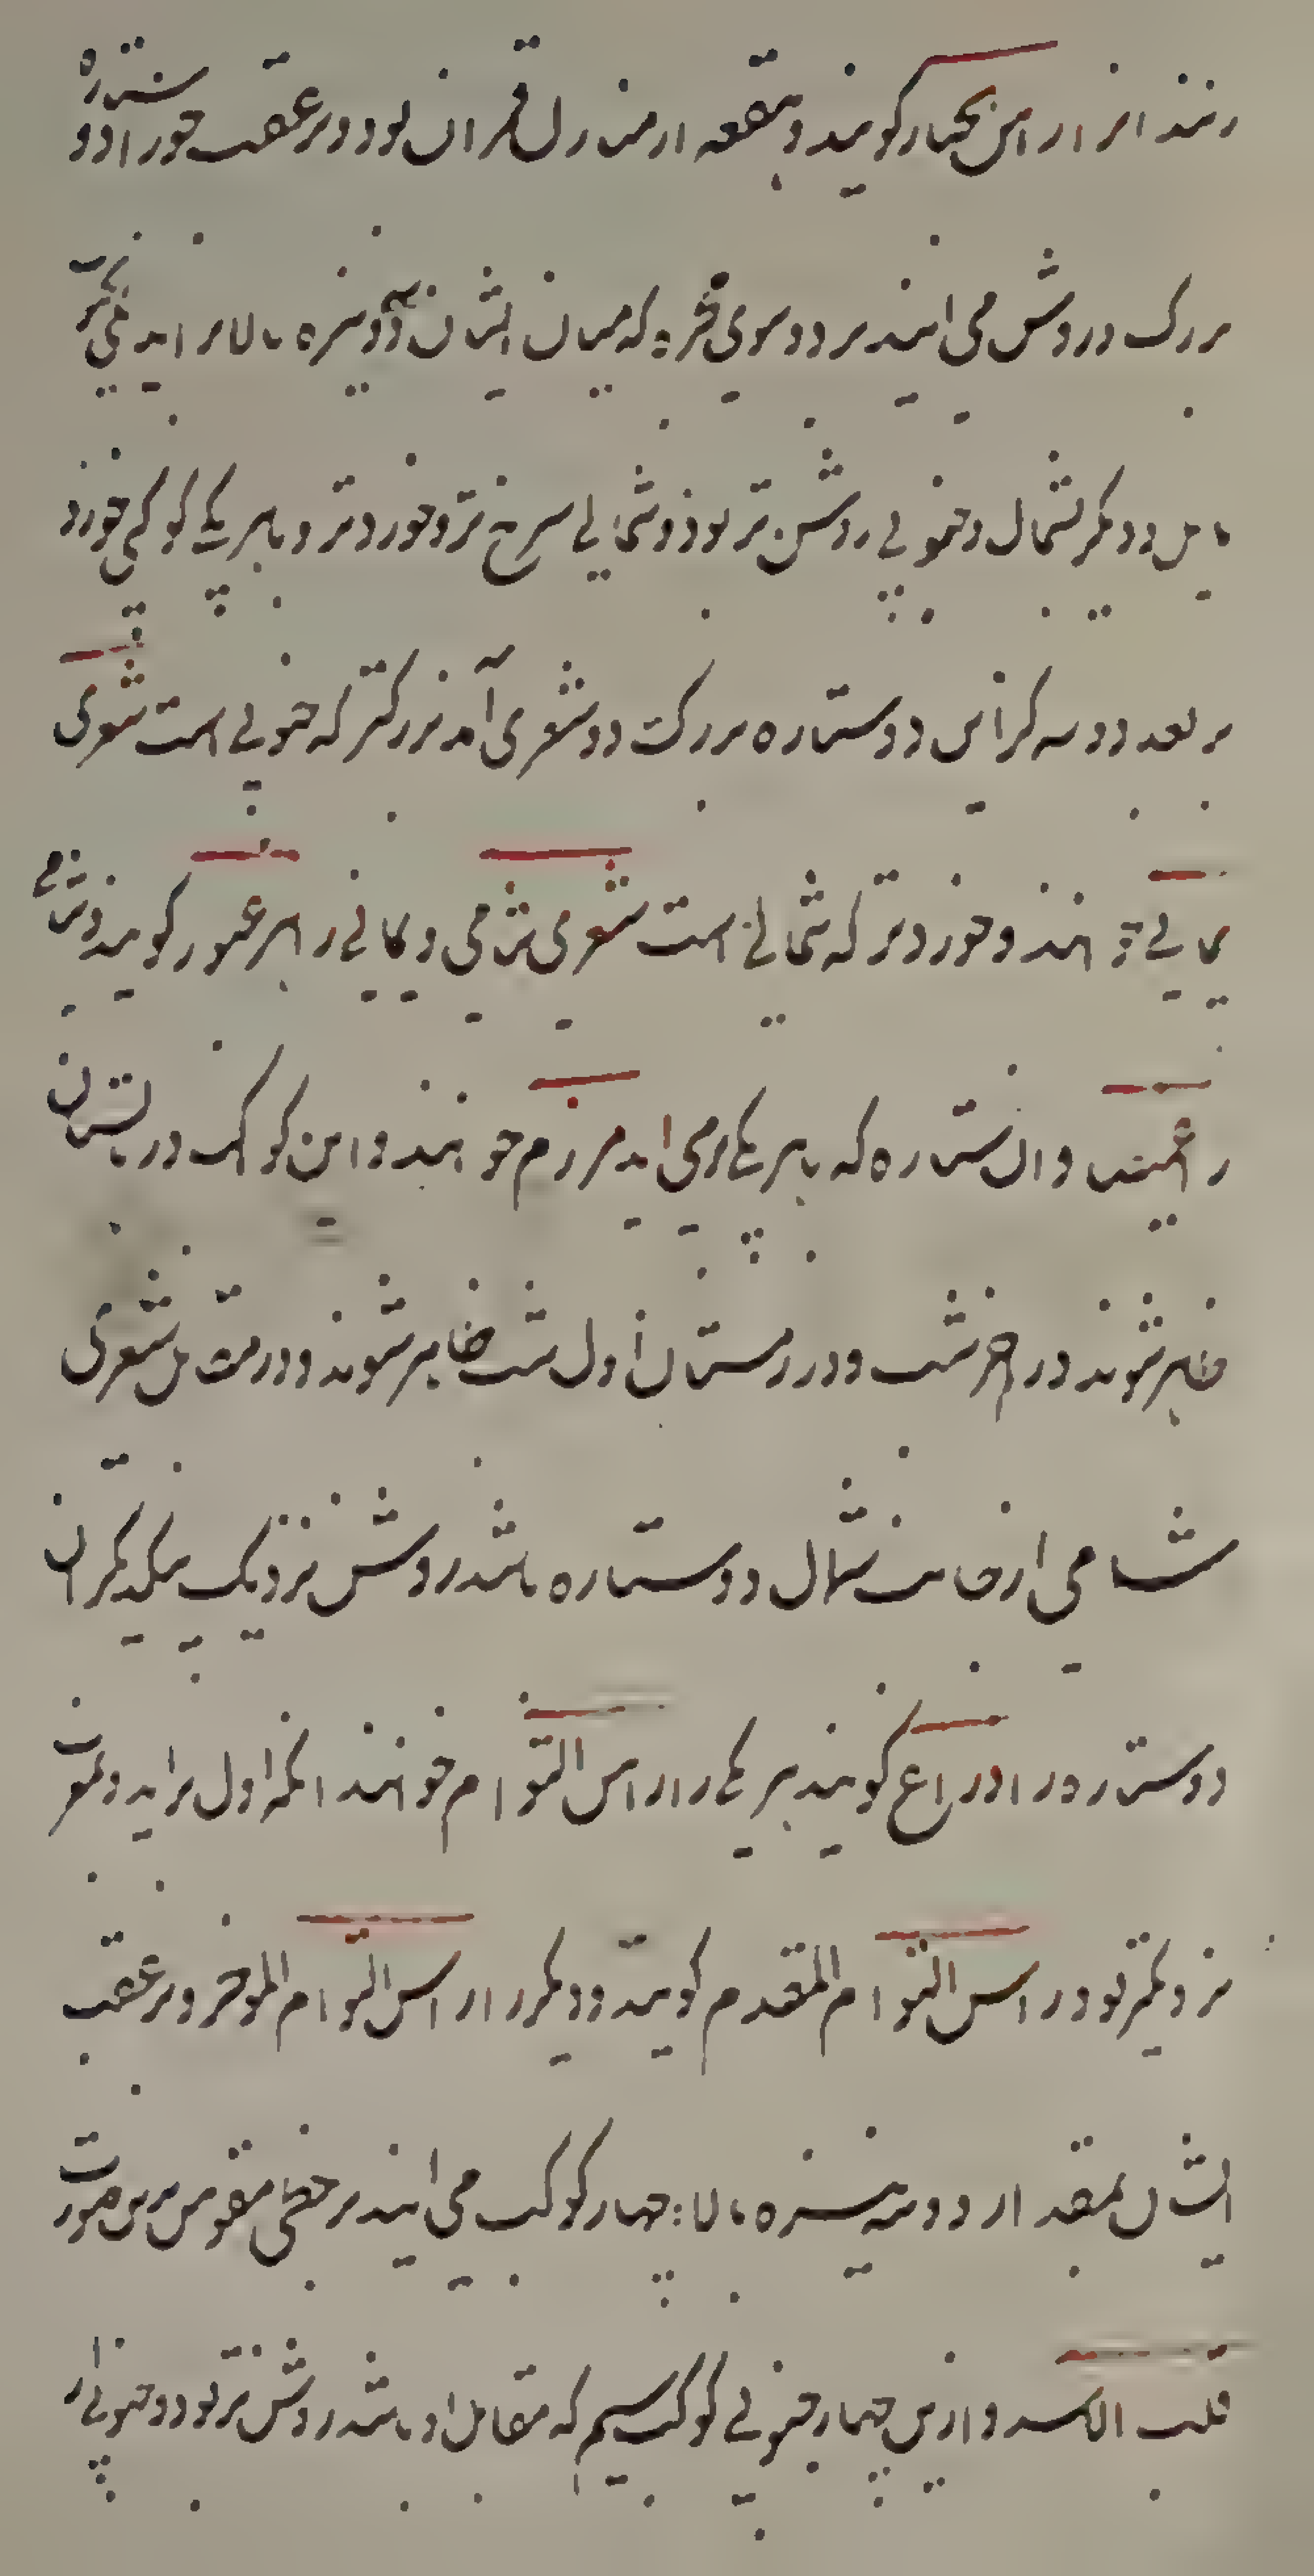 رنند انرا راس الجبار گویند و هقعه از منازل قمر ان بود و بر عقب جوزا دو ستاره
بزرگ و روشن می ایند بر دو سوی مجره که میان ایشان دو نیزه بالا بر اید یکی بجنوب
مایل و دیگر بشمال و جنوبی روشن تر بود و شمالی سرخ تر و خوردتر و با هر یکی کوکبی خورد
بر بعد دو سه کز این دو ستاره بزرگ دو شعری اند بزرگتر که جنوبی است شعری
یمانی خوانند و خوردتر که شمالی است شعری شامی و یمانی را هم عبور گویند و شامی
را غمیصا و ان ستاره که با هر یکی می اید مرزم خوانند و این کواکب در تابستان
ظاهر شوند در اخر شب و در زمستان اول شب ظاهر شوند و در مقابل شعری
شامی از جانب شمال دو ستاره باشد روشن نزدیک یکدیگر ان
دو ستاره را ذراع گویند هر یکی را راس التوام خوانند انکه اول براید و بمغرب
نزدیکتر بود راس التوام المقدم گویند و دیگر را راس التوام الموخر و بر عقب
ایشان بمقدار دو سه نیزه بالا چهار کوکب می ایند بر خطی مقوس برین صورت
قلب الاسد و ازین چهار جنوبی کوکب سیم که مقابل او باشد روشن تر بود و جنوبی را